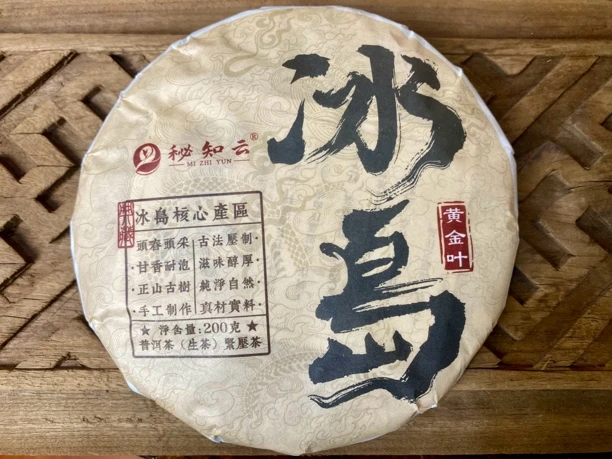 冰島
黄金叶
秘知云®
MI ZHI YUN
冰島核心產區
頭春頭采·古法壓制·
·甘香耐泡 滋味醇厚·
·正山古樹 純淨自然·
·手工制作 真材實料·
★ 淨含量:200克 ★
普洱茶（生茶）緊壓茶